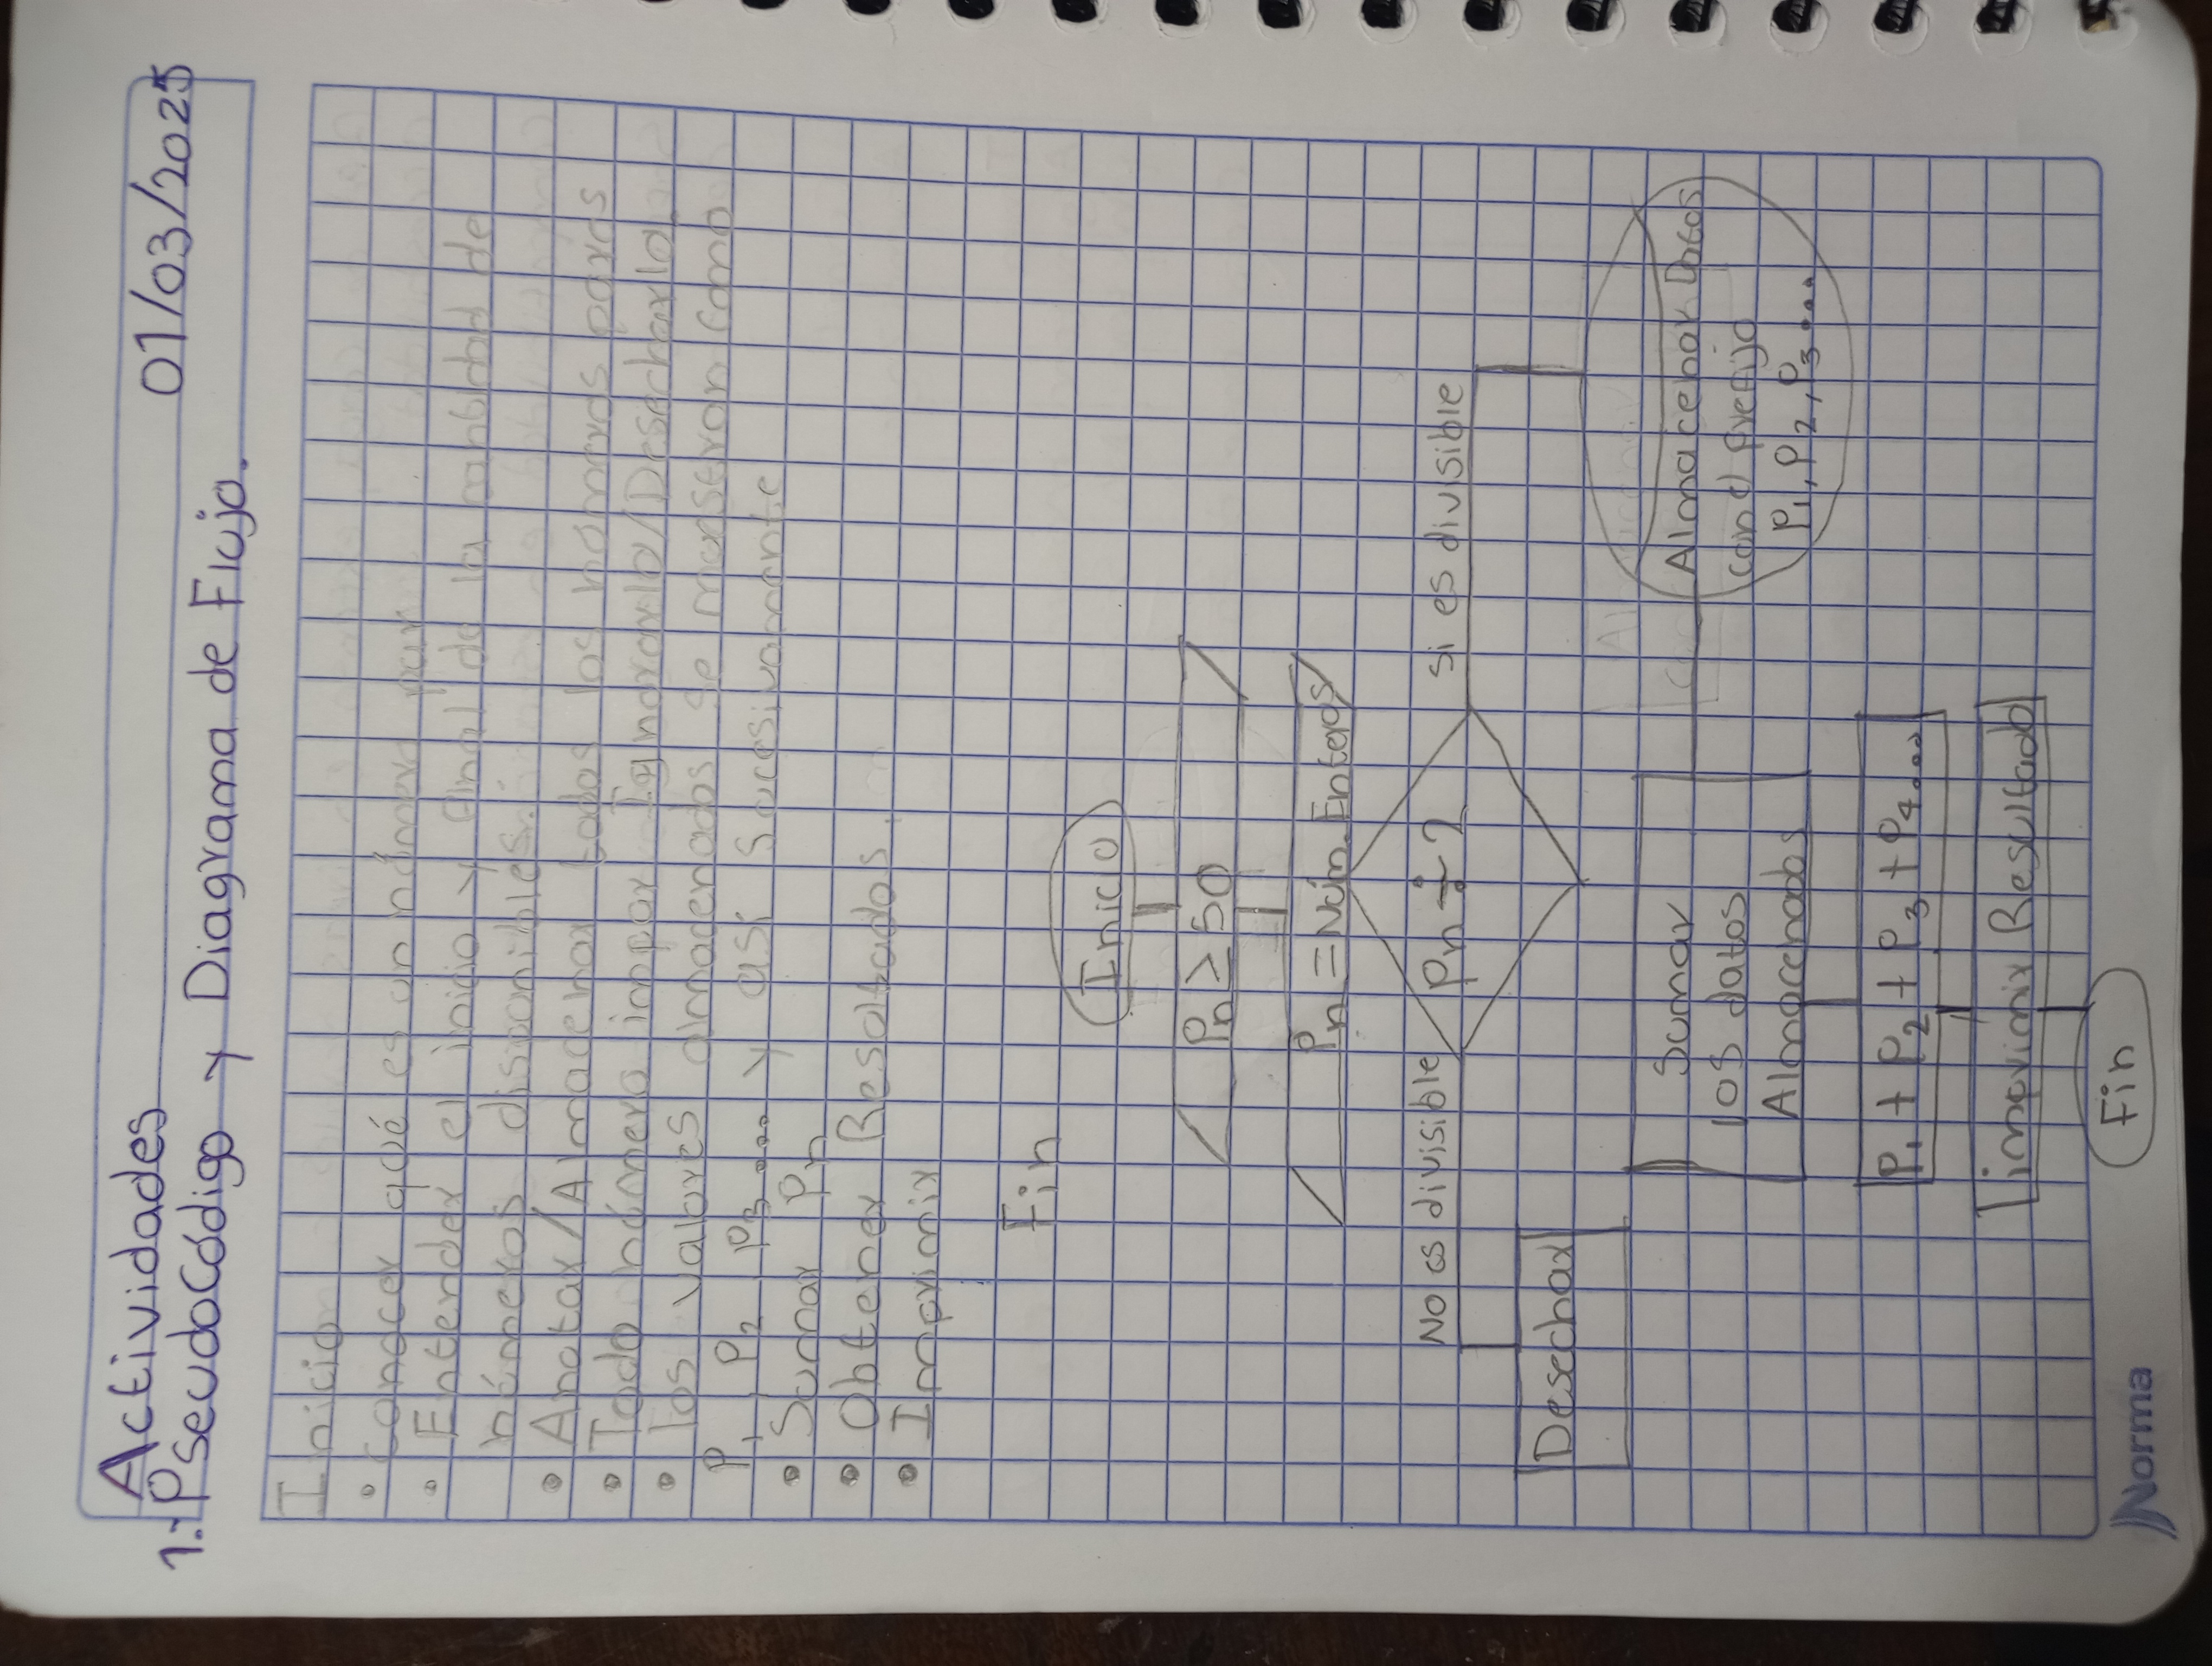 Actividades
01/03/2025
1.- Pseudocódigo y Diagrama de Flujo.
Inicio
• conocer qué es un número par
• Entender el inicio y final de la cantidad de
números disponibles.
• Anotar/Almacenar todos los números pares
• Todo número impar Ignorarlo/Desecharlo
• los valores almacenados se muestran como
P1, P2, P3.... y así sucesivamente
• Sumar Pn
• Obtener Resultados.
• Imprimir
Fin
Inicio
Pn ≥ 50
Pn = Núm. Enteros
No es divisible
Pn ÷ 2
si es divisible
Desechar
Sumar
los datos
Almacenados
Almacenar Datos
con el prefijo
P1, P2, P3....
P1 + P2 + P3 + P4....
imprimir Resultado
Fin
Norma